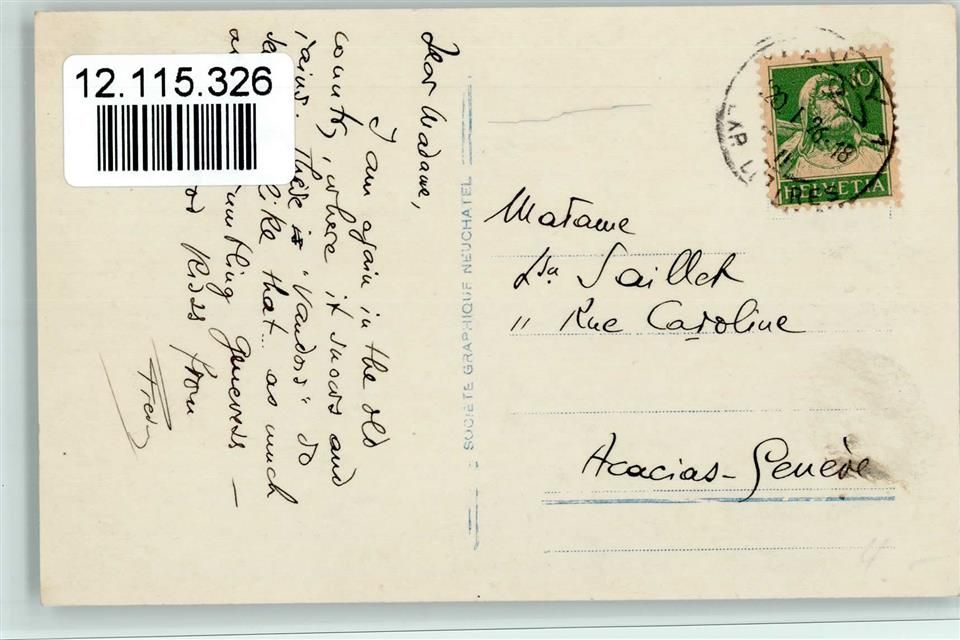 12.115.326
Dear Madame,
I am again in the old
country, where it snows and
rains. There is "Vaudois" do
like that... as much
Genevese –
Kiss from
Fredy
SOCIÉTÉ GRAPHIQUE NEUCHATEL
10
HELVETIA
Matame
Saillet
11 Rue Caroline
Acacias-Genève